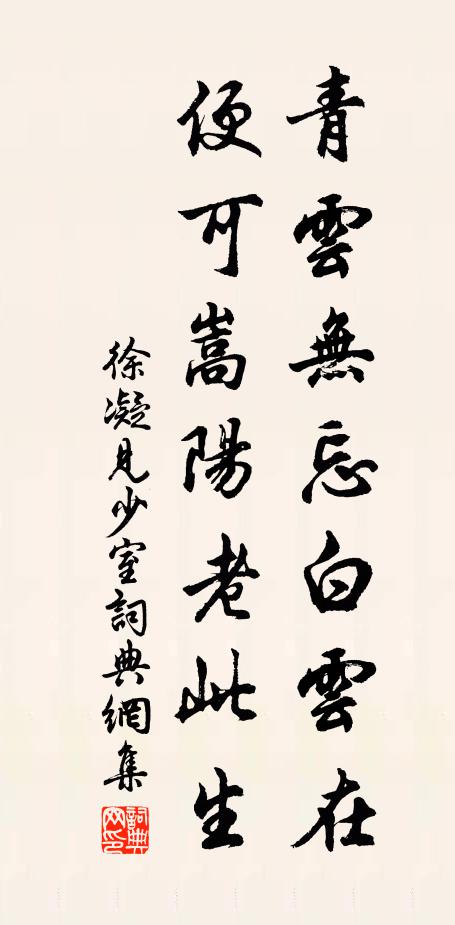 青雲無忘白雲在
便可嵩陽老此生
徐凝見少室詞典網集
詞典网印